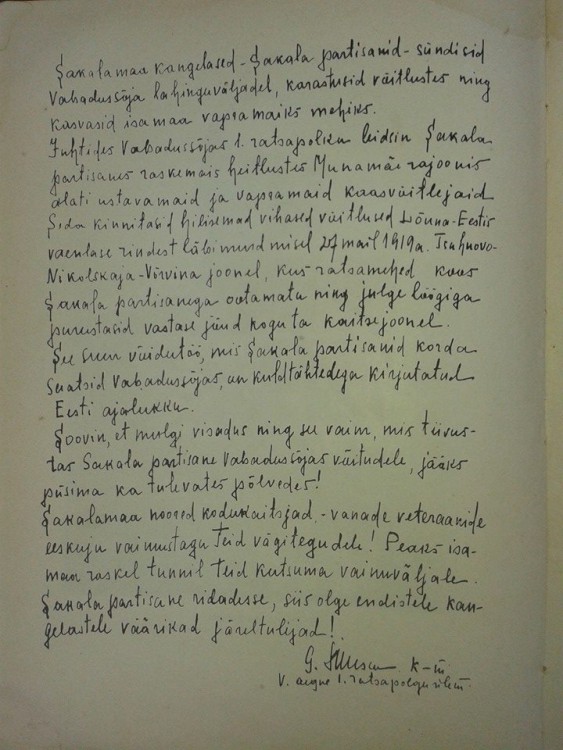 Sakalamaa kangelased - Sakala partisanid - sündisid
Vabadussõja lahinguväljadel, karastusid võitlustes ning
kasvasid isamaa vapramaiks mehiks.
Juhtides Vabadussõjas 1. ratsapolku leidsin Sakala
partisanes raskemais heitlustes Munamäe rajoonis
alati ustavamaid ja vapramaid kaasvõitlejaid
Seda kinnitasid hilisemad vihased võitlused Lõuna-Eestis
vaenlase rindest läbimurdmisel 27 mail 1919 a.
Nikolskaja-Virvina joonel, kus ratsamehed koos
Sakala partisanega ootamatu ning julge löögiga
purustasid vastase jõud kogu ta kaitsejoonel.
See suur võidutöö, mis Sakala partisanid korda
saatsid Vabadussõjas, on kuldtähtedega kirjutatud
Eesti ajalukku.
Soovin, et mulgi visadus ning see vaim, mis tiivus-
tas Sakala partisane Vabadussõjas võitudele, jääks
püsima ka tulevates põlvedes!
Sakalamaa noored kodukaitsjad, - vanade veteraanide
eeskuju vaimustagu Teid vägitegudele! Peaks isa-
maa raskel tunnil Teid kutsuma vainuväljale
Sakala partisane ridadesse, siis olge endistele kan-
gelastele väärikad järeltulijad!
G. K-m
V. aegne 1. ratsapolgu ülem.